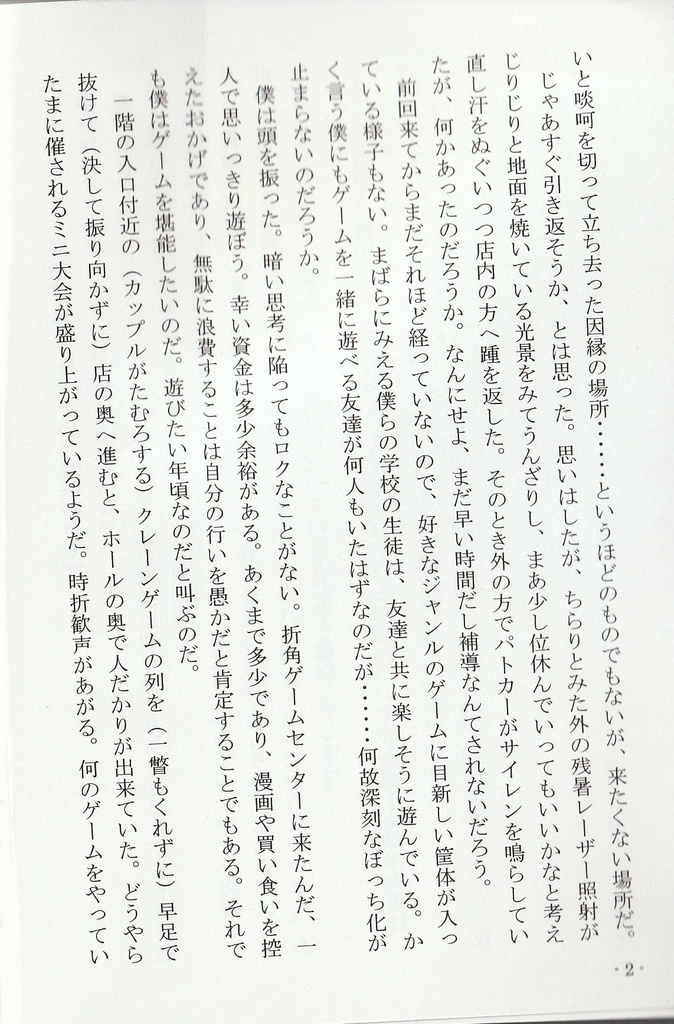 いと啖呵を切って立ち去った因縁の場所……というほどのものでもないが、来たくない場所だ。
じゃあすぐ引き返そうか、とは思った。思いはしたが、ちらりとみた外の残暑レーザー照射が
じりじりと地面を焼いている光景をみてうんざりし、まあ少し位休んでいってもいいかなと考え
直し汗をぬぐいつつ店内の方へ踵を返した。そのとき外の方でパトカーがサイレンを鳴らしてい
たが、何かあったのだろうか。なんにせよ、まだ早い時間だし補導なんてされないだろう。
前回来てからまだそれほど経っていないので、好きなジャンルのゲームに目新しい筐体が入っ
ている様子もない。まばらにみえる僕らの学校の生徒は、友達と共に楽しそうに遊んでいる。か
く言う僕にもゲームを一緒に遊べる友達が何人もいたはずなのだが……何故深刻なぼっち化が
止まらないのだろうか。
僕は頭を振った。暗い思考に陥ってもロクなことがない。折角ゲームセンターに来たんだ、一
人で思いっきり遊ぼう。幸い資金は多少余裕がある。あくまで多少であり、漫画や買い食いを控
えたおかげであり、無駄に浪費することは自分の行いを愚かだと肯定することでもある。それで
も僕はゲームを堪能したいのだ。遊びたい年頃なのだと叫ぶのだ。
一階の入口付近の（カップルがたむろする）クレーンゲームの列を（一瞥もくれずに）早足で
抜けて（決して振り向かずに）店の奥へ進むと、ホールの奥で人だかりが出来ていた。どうやら
たまに催されるミニ大会が盛り上がっているようだ。時折歓声があがる。何のゲームをやってい
- 2 -